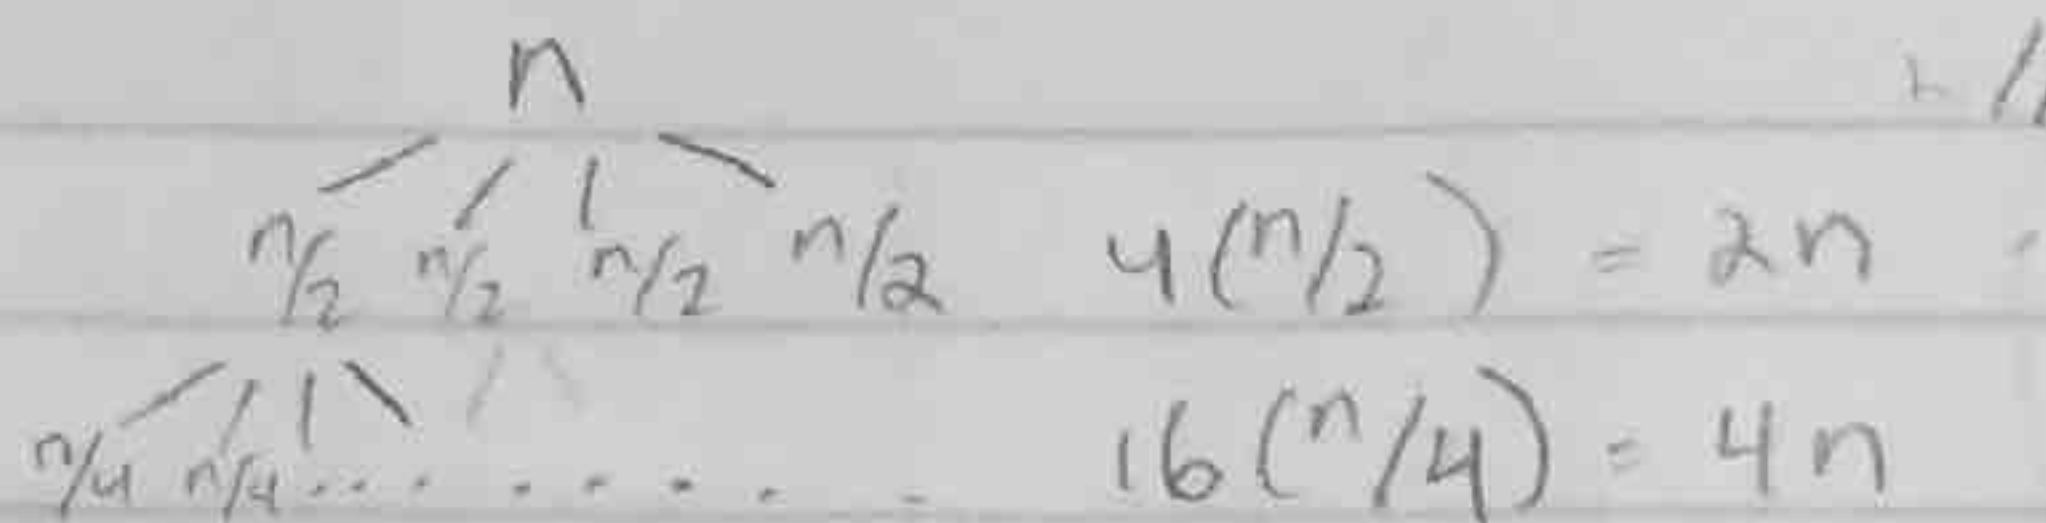 n
n/2 n/2 n/2 n/2 4(n/2) = 2n
n/4 n/4 ......... 16(n/4) = 4n